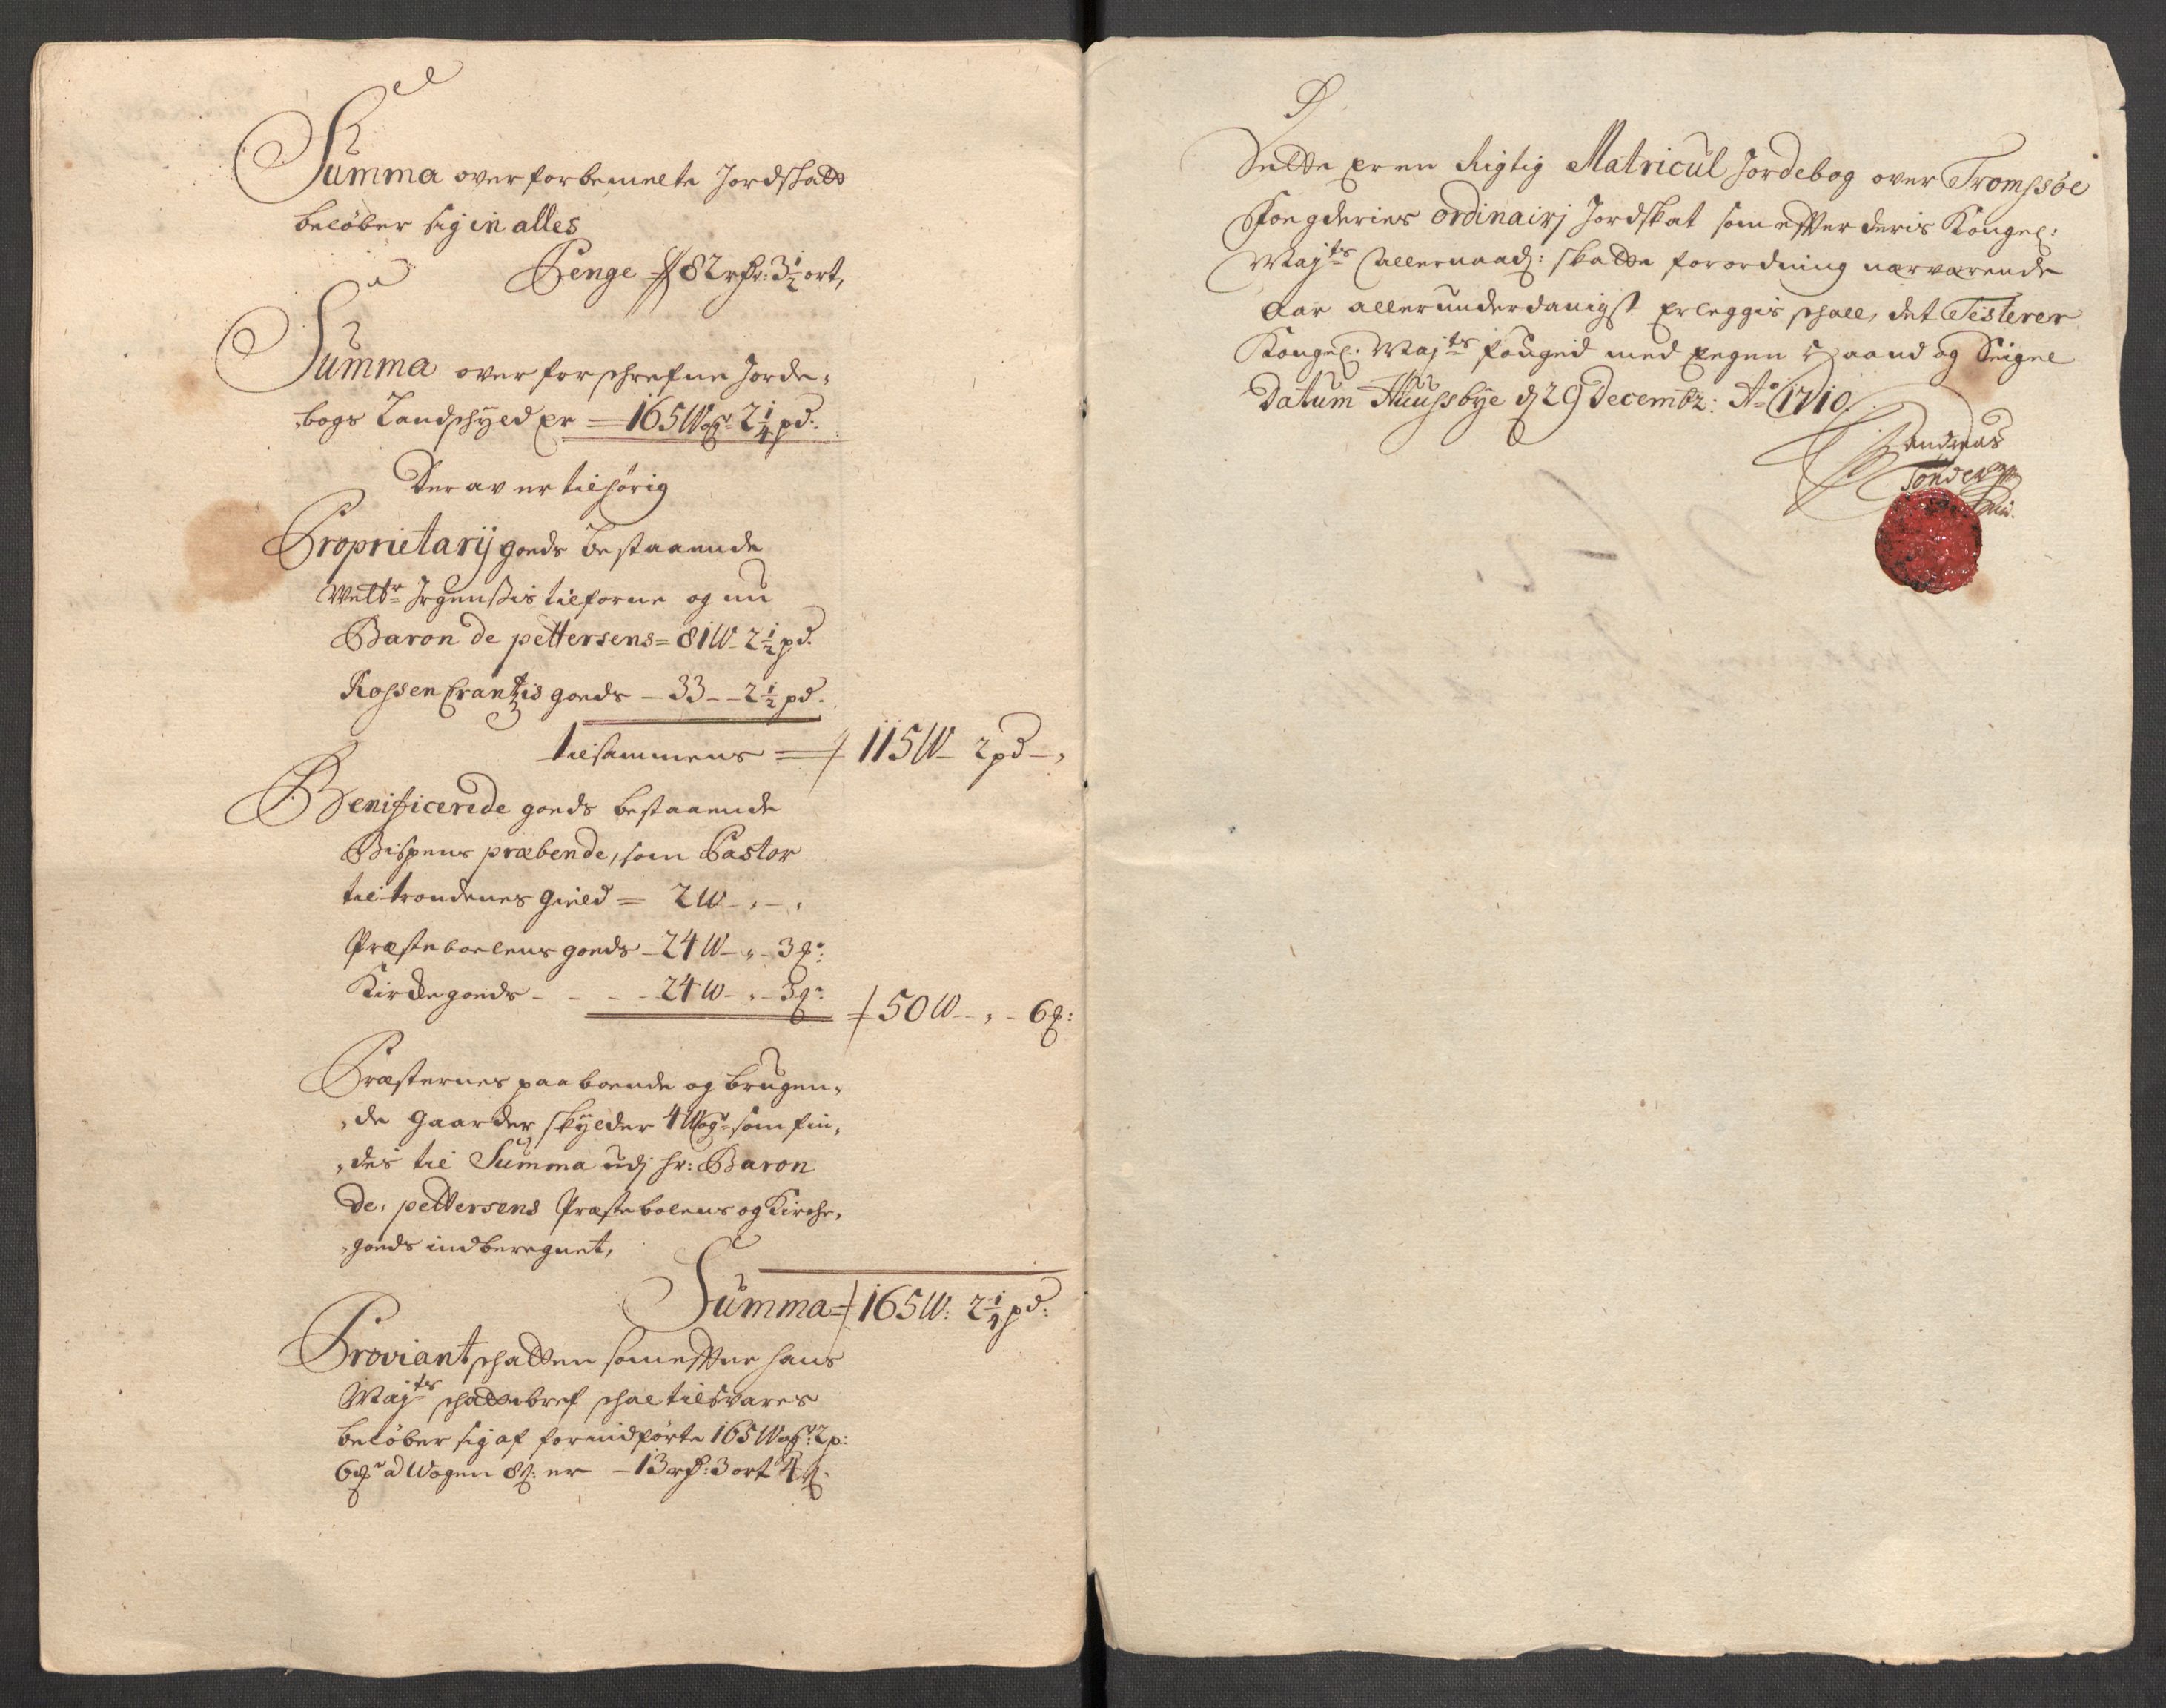 Summa over forbemelte Jordskatt
beløber sig in alles
Penge 82 rdr: 3½ ort,
Summa over forschrefne Jorde,
bogs Landschyld er = 165 Wogr 2¼ pd:
Der av er tilhørig
Proprietarij goeds bestaaende
Welbr Irgenssis tilforne og nu
Baron de pettersens = 81 W 2½ pd.
Rossen Crantzis goeds – 33 – – 2½ pd.
tilsammens = 115 W – 2 pd – ,
Benificerede goeds bestaaende
Bispens præbende, som Pastor
til trondenes gield = 2 W – , – ,
Præsteboelens goeds – 24 W – , – 3
Kirkegoeds – – – 24 W – , – 3
50 W – , – 6
Præsternes paaboende og brugen,
,de gaarder skylder 4 Wogr som fin,
,des til Summa udj hr: Baron
de, pettersens Præstebolens og Kirche,
,goeds indberegnet,
Summa = 165 W: 2¼ pd:
Proviantschatten som efter hans
Mayts schattebref schal tilsvares
beløber sig af forindførte 165 Wogr: 2 p:
6 a Wogen 8 s: er – 13 rdr: 3 ort 4 s.
Dette er en Rigtig Matricul Jordebog over Tromssøe
Fogderies ordinairj Jordskat som efter deris Kongel:
Mayts allernaad: skatte forordning nærværende
Aar allerunderdanigst erleggis schall, det Testerer
Kongel. Mayts fouged med Eegen Haand og Seigel
Datum Huussbye d 29 Decembr: Ao 1710.
Andreas
Tønder